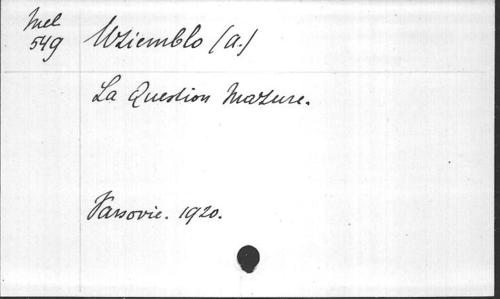 Mel
549
Uziemblo (A.)
La Question Mazure.
Varsovie. 1920.